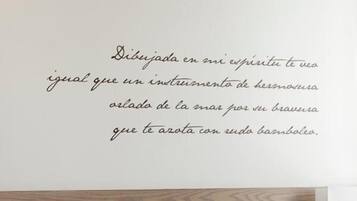 Dibujada en mi espíritu te veo
igual que un instrumento de hermosura
orlado de la mar por su bravura
que te azota con rudo bamboleo.